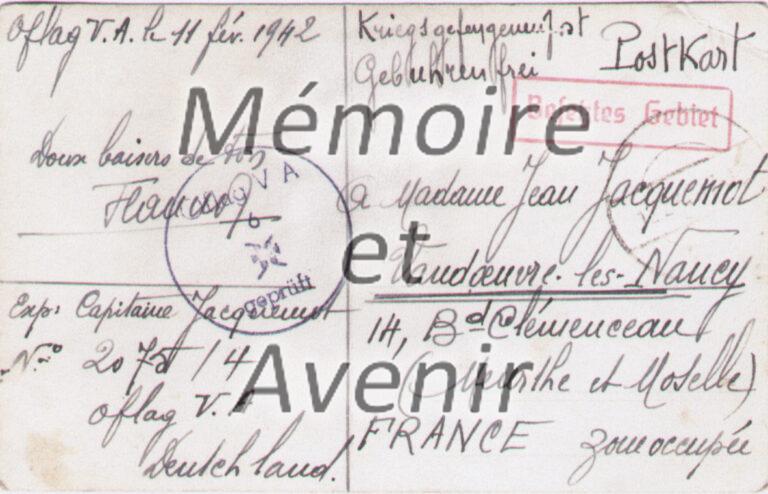 Oflag V.A. le 11 fév. 1942
Doux baisers de ton
Exp: Capitaine Jacquemot
N° 2075/4
Oflag V.A
Deutchland.
Kriegsgefangenenpost
Gebuhrenfrei
PostKart
Besetztes Gebiet
a Madame Jean Jacquemot
Vandœuvre-les-Nancy
14, Bd Clémenceau
(Meurthe et Moselle)
FRANCE zone occupée
Oflag V A
6
geprüft
Mémoire
et
Avenir